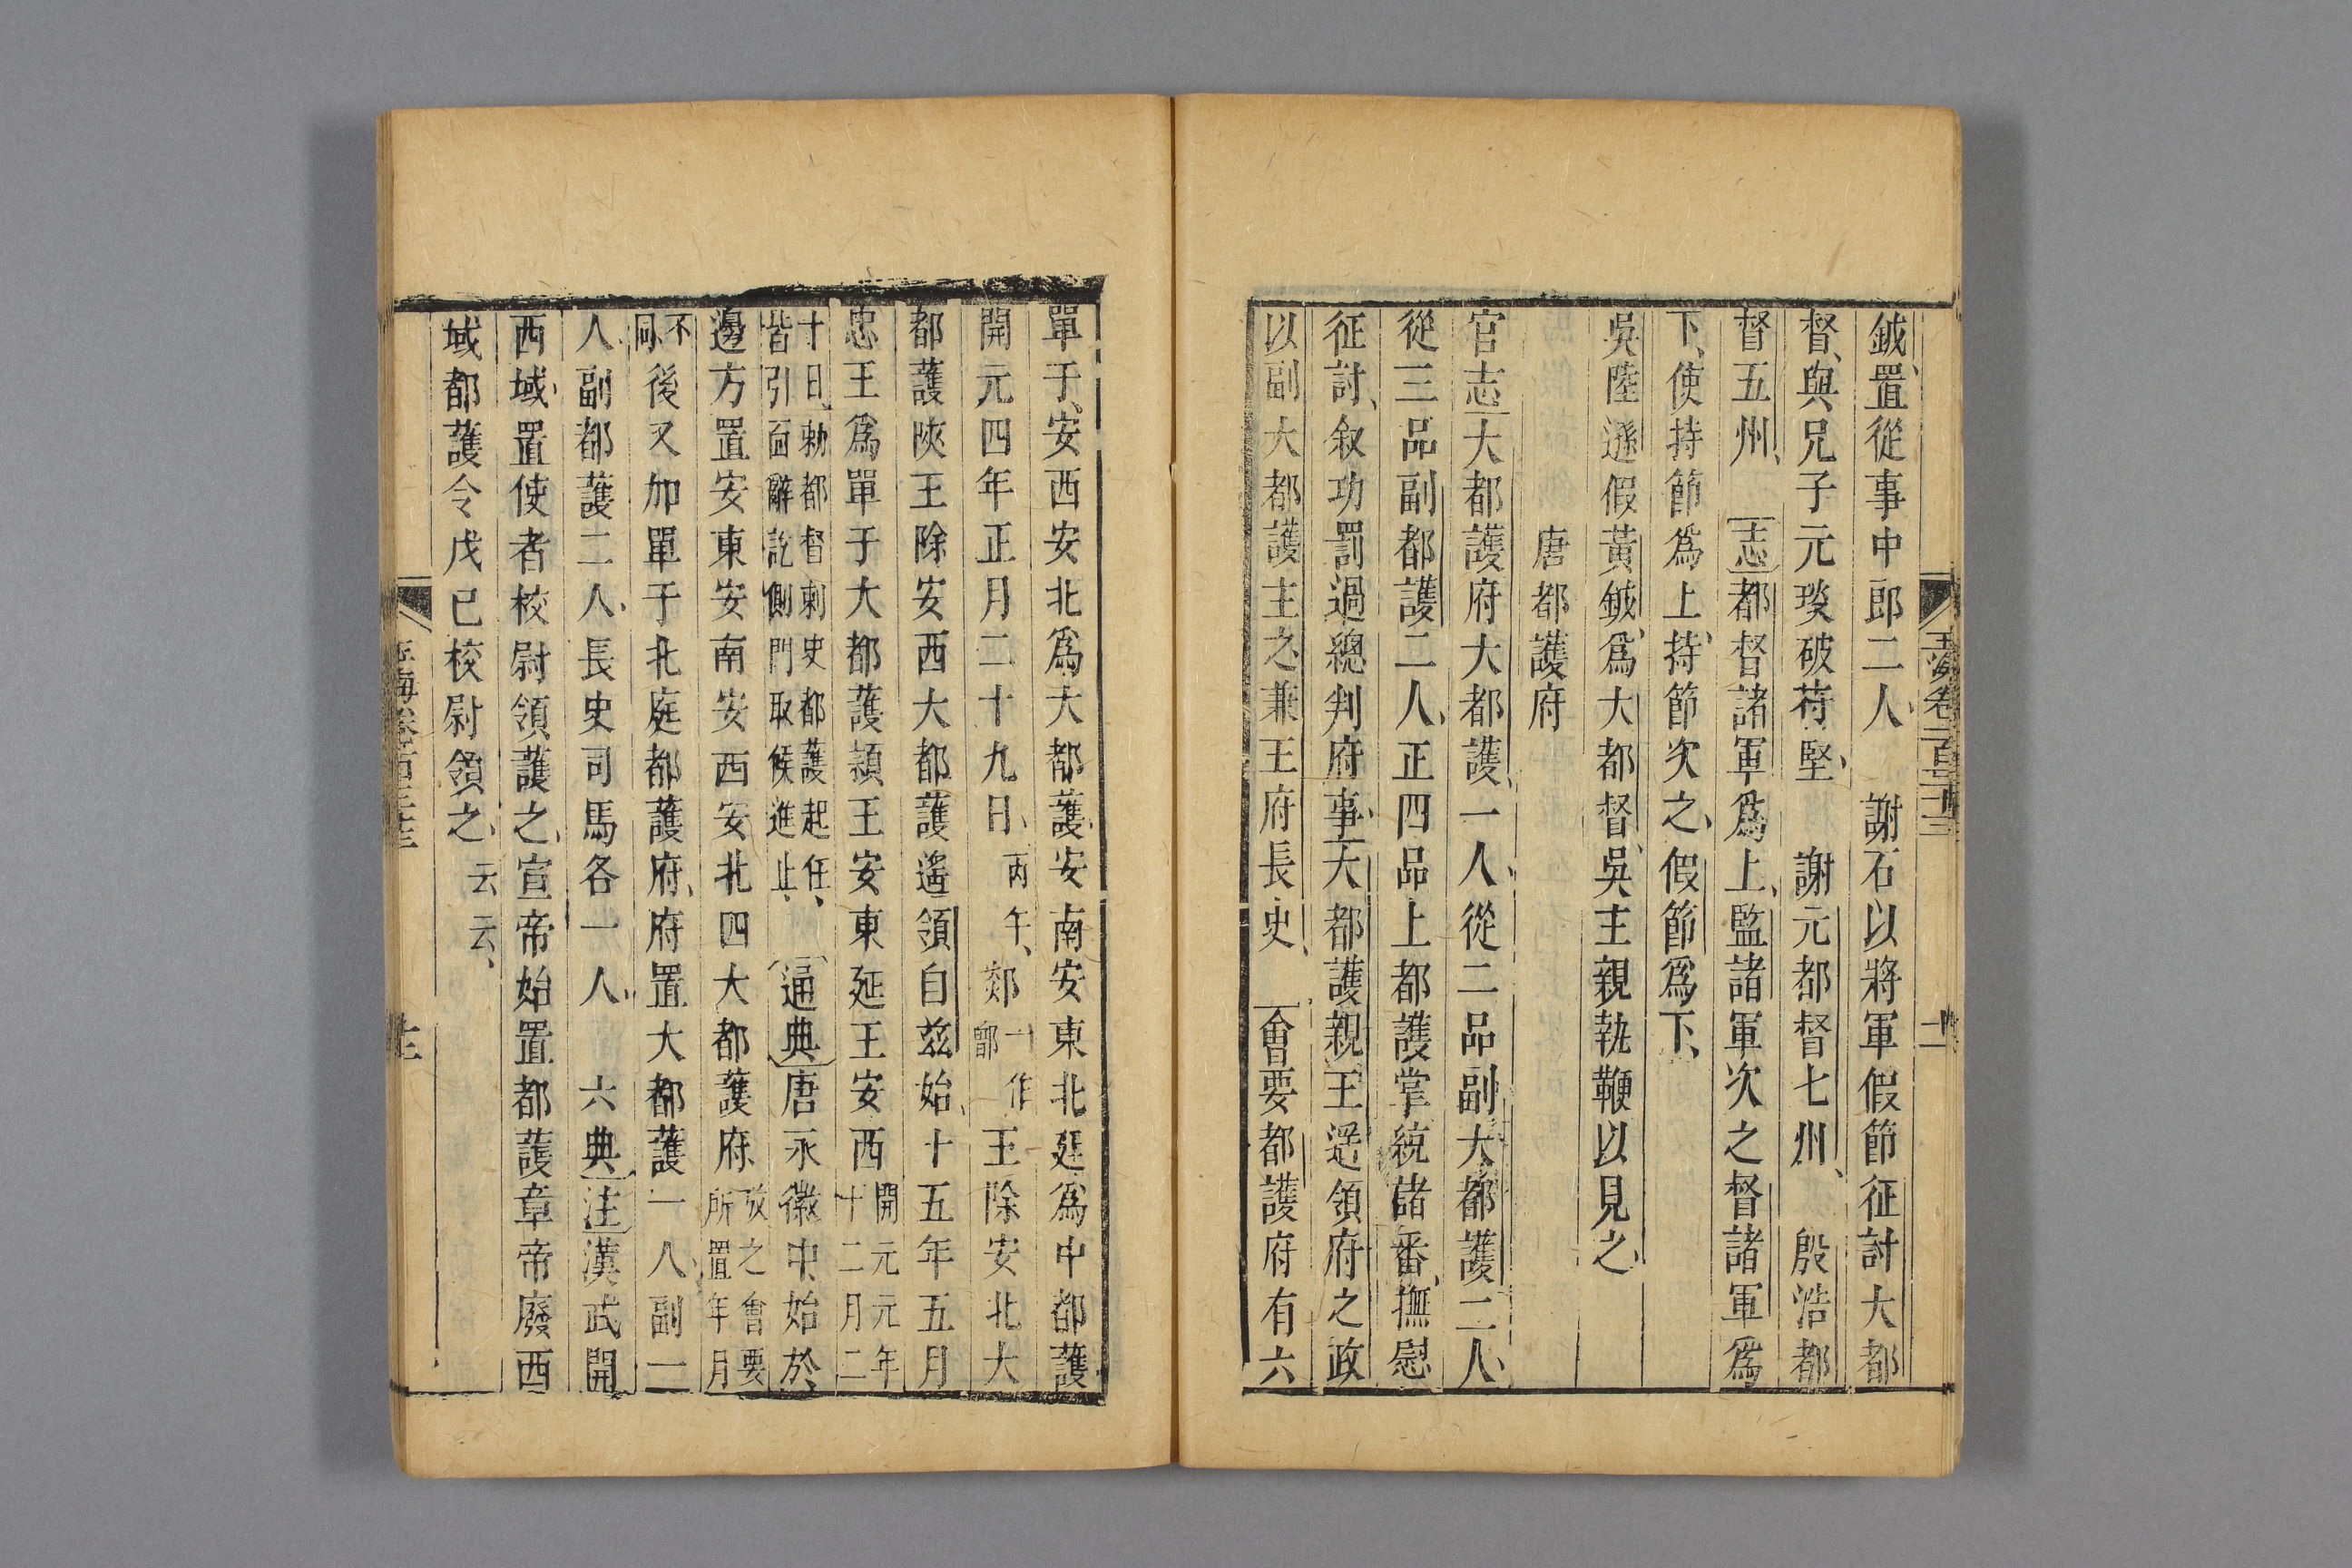 鉞、置從事中郎二人、 謝石以將軍假節征討大都
督、與兄子元琰破苻堅、 謝元都督七州、 殷浩都
督五州、 志都督諸軍爲上、監諸軍次之督諸軍爲
下、使持節爲上、持節次之、假節爲下、
吳陸遜假黃鉞、爲大都督、吳主親執鞭以見之、
唐都護府
官志大都護府大都護、一人、從二品副大都護二人、
從三品副都護二人、正四品上都護掌統諸番、撫慰
征討、叙功罰過總判府事、大都護親王遥領府之政
以副大都護主之兼王府長史、 會要都護府有六
單于、安西安北爲大都護、安南安東北廷爲中都護、
開元四年正月二十九日、丙午、郯一作鄫王除安北大
都護陝王除安西大都護遙領自茲始、十五年五月
忠王爲單于大都護潁王安東延王安西開元元年十二月二
十日、勅都督刺史都護起任、皆引面辭訖側門取候進止、 通典唐永徽中始於
邊方置安東安南安西安北四大都護府攷之會要所置年月
不同後又加單于北庭都護府、府置大都護一人、副一
人、副都護二人、長史司馬各一人、 六典注漢武開
西域、置使者校尉領護之、宣帝始置都護章帝廢西
域都護令戊已校尉領之、云云、